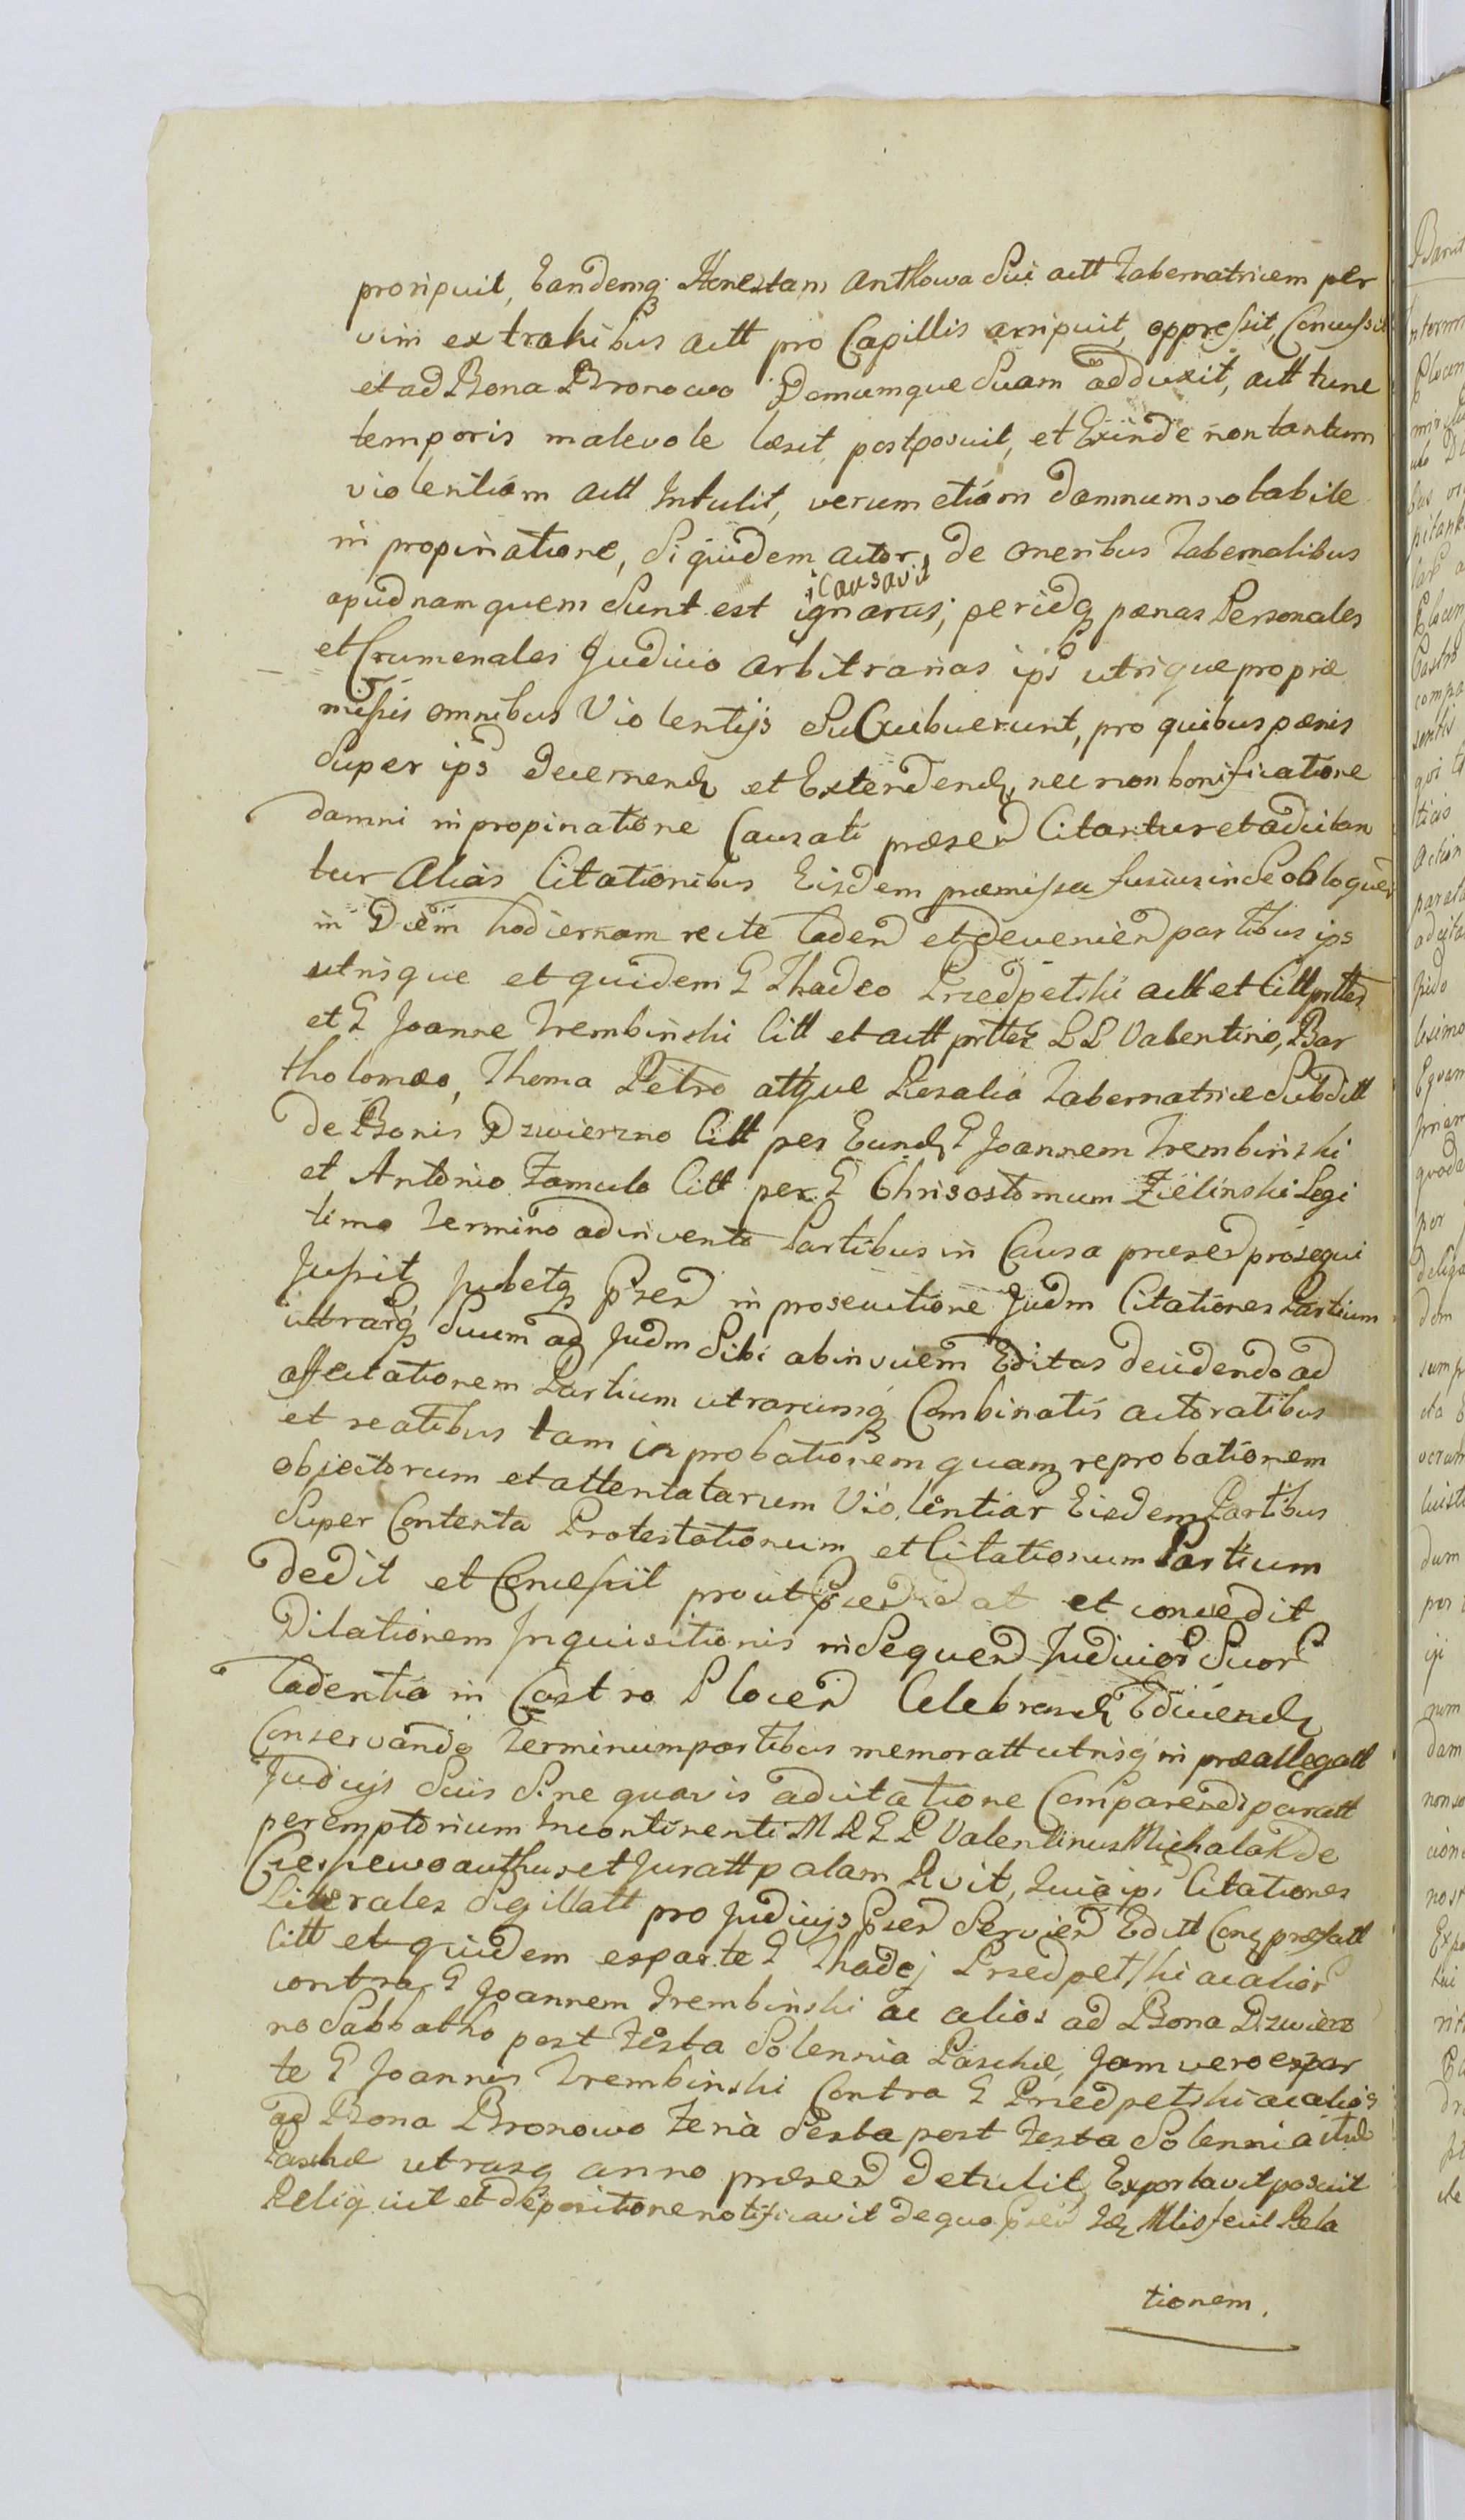 proripuit, Eandemq Honestam Antkowa Sui actt Tabernatricem per
vim extrahibus actt pro Capillis arripuit, oppressit, Concussit
et ad Bona Bronowo Domumque Suam adduxit, actt tunc
temporis malevole læsit, postposuit, et Exinde non tantum
violentiam actt Intulit, verum etiam damnum notabile
in propinatione, Siquidem actor, de oneribus Tabernalibus
causavit
apud nam quem Sunt est ignarus; peridq pænas Personales
et Crumenales Judicio arbitrarias ips utrique pro præ
missis omnibus Violentijs SuCcubuerunt, pro quibus pænis
Super ips decernend et Extendend, nec non bonificatione
damni in propinatione Causati præsen Citantur et adcitan
tur Alias Citationibus Eisdem præmissa fusius in se obloquen
in Diem hodiernam recte Caden et devenien partibus ips
utrisque et quidem G Thadeo Przedpetski actt et Citt prttes
et G Joanne Trembinski Citt et actt prttes LL Valentino, Bar
tholomæo, Thoma Petro atque Rosalia Tabernatrice Subditt
de Bonis Dzwierzno Citt per Eund G Joannem Trembinski
et Antonio Famulo Citt per G Chrisostomum Zielinski Legi
timo Termino adinvento Partibus in Causa præsen prosequi
Jussit Jubetq Præsen in prosecutione Judm Citationes Partium
utrarq Suum ad Judm Sibi abinvicem Editas decidendo ad
affectationem Partium utrarumq Combinatis actoratibus
et reatibus tam in probationem quam reprobationem
objectorum et attentatarum Violentiar Eisdem Partibus
Super Contenta Protestationum et Citationum Partium
dedit et Concessit prout Præsen dat et concedit
Dilationem Inquisitionis in Sequen Judicior Suor
Cadentia in Castro Plocen Celebrand Educend
Conservando Terminum partibus memoratt utrisq in præallegatt
Judicijs Suis Sine quavis adcitatione Comparendi paratt
peremptorium Incontinenti M R G P Valentinus Michalak de
Cieszewo authus et Juratt palam Rvit, Quia ips Citationes
Literales Sigillatt pro Judicijs Præsen Servien Editt Conq præfatt
Citt et quidem ex parte G Thadej Przedpetski ac alior
contra G Joannem Trembinski ac alios ad Bona Dzwierz
no Sabbatho post Festa Solennia Paschæ, Jam vero ex par
te G Joannis Trembinski Contra G Przedpetski ac alios
ad Bona Bronowo Feria Sexta post Festa Solennia itid
Paschæ utrasq anno præsen detulit, Exportavit posuit
Reliquit et de positione notificavit de quo Præsen Mlis fecit Rela
tionem.